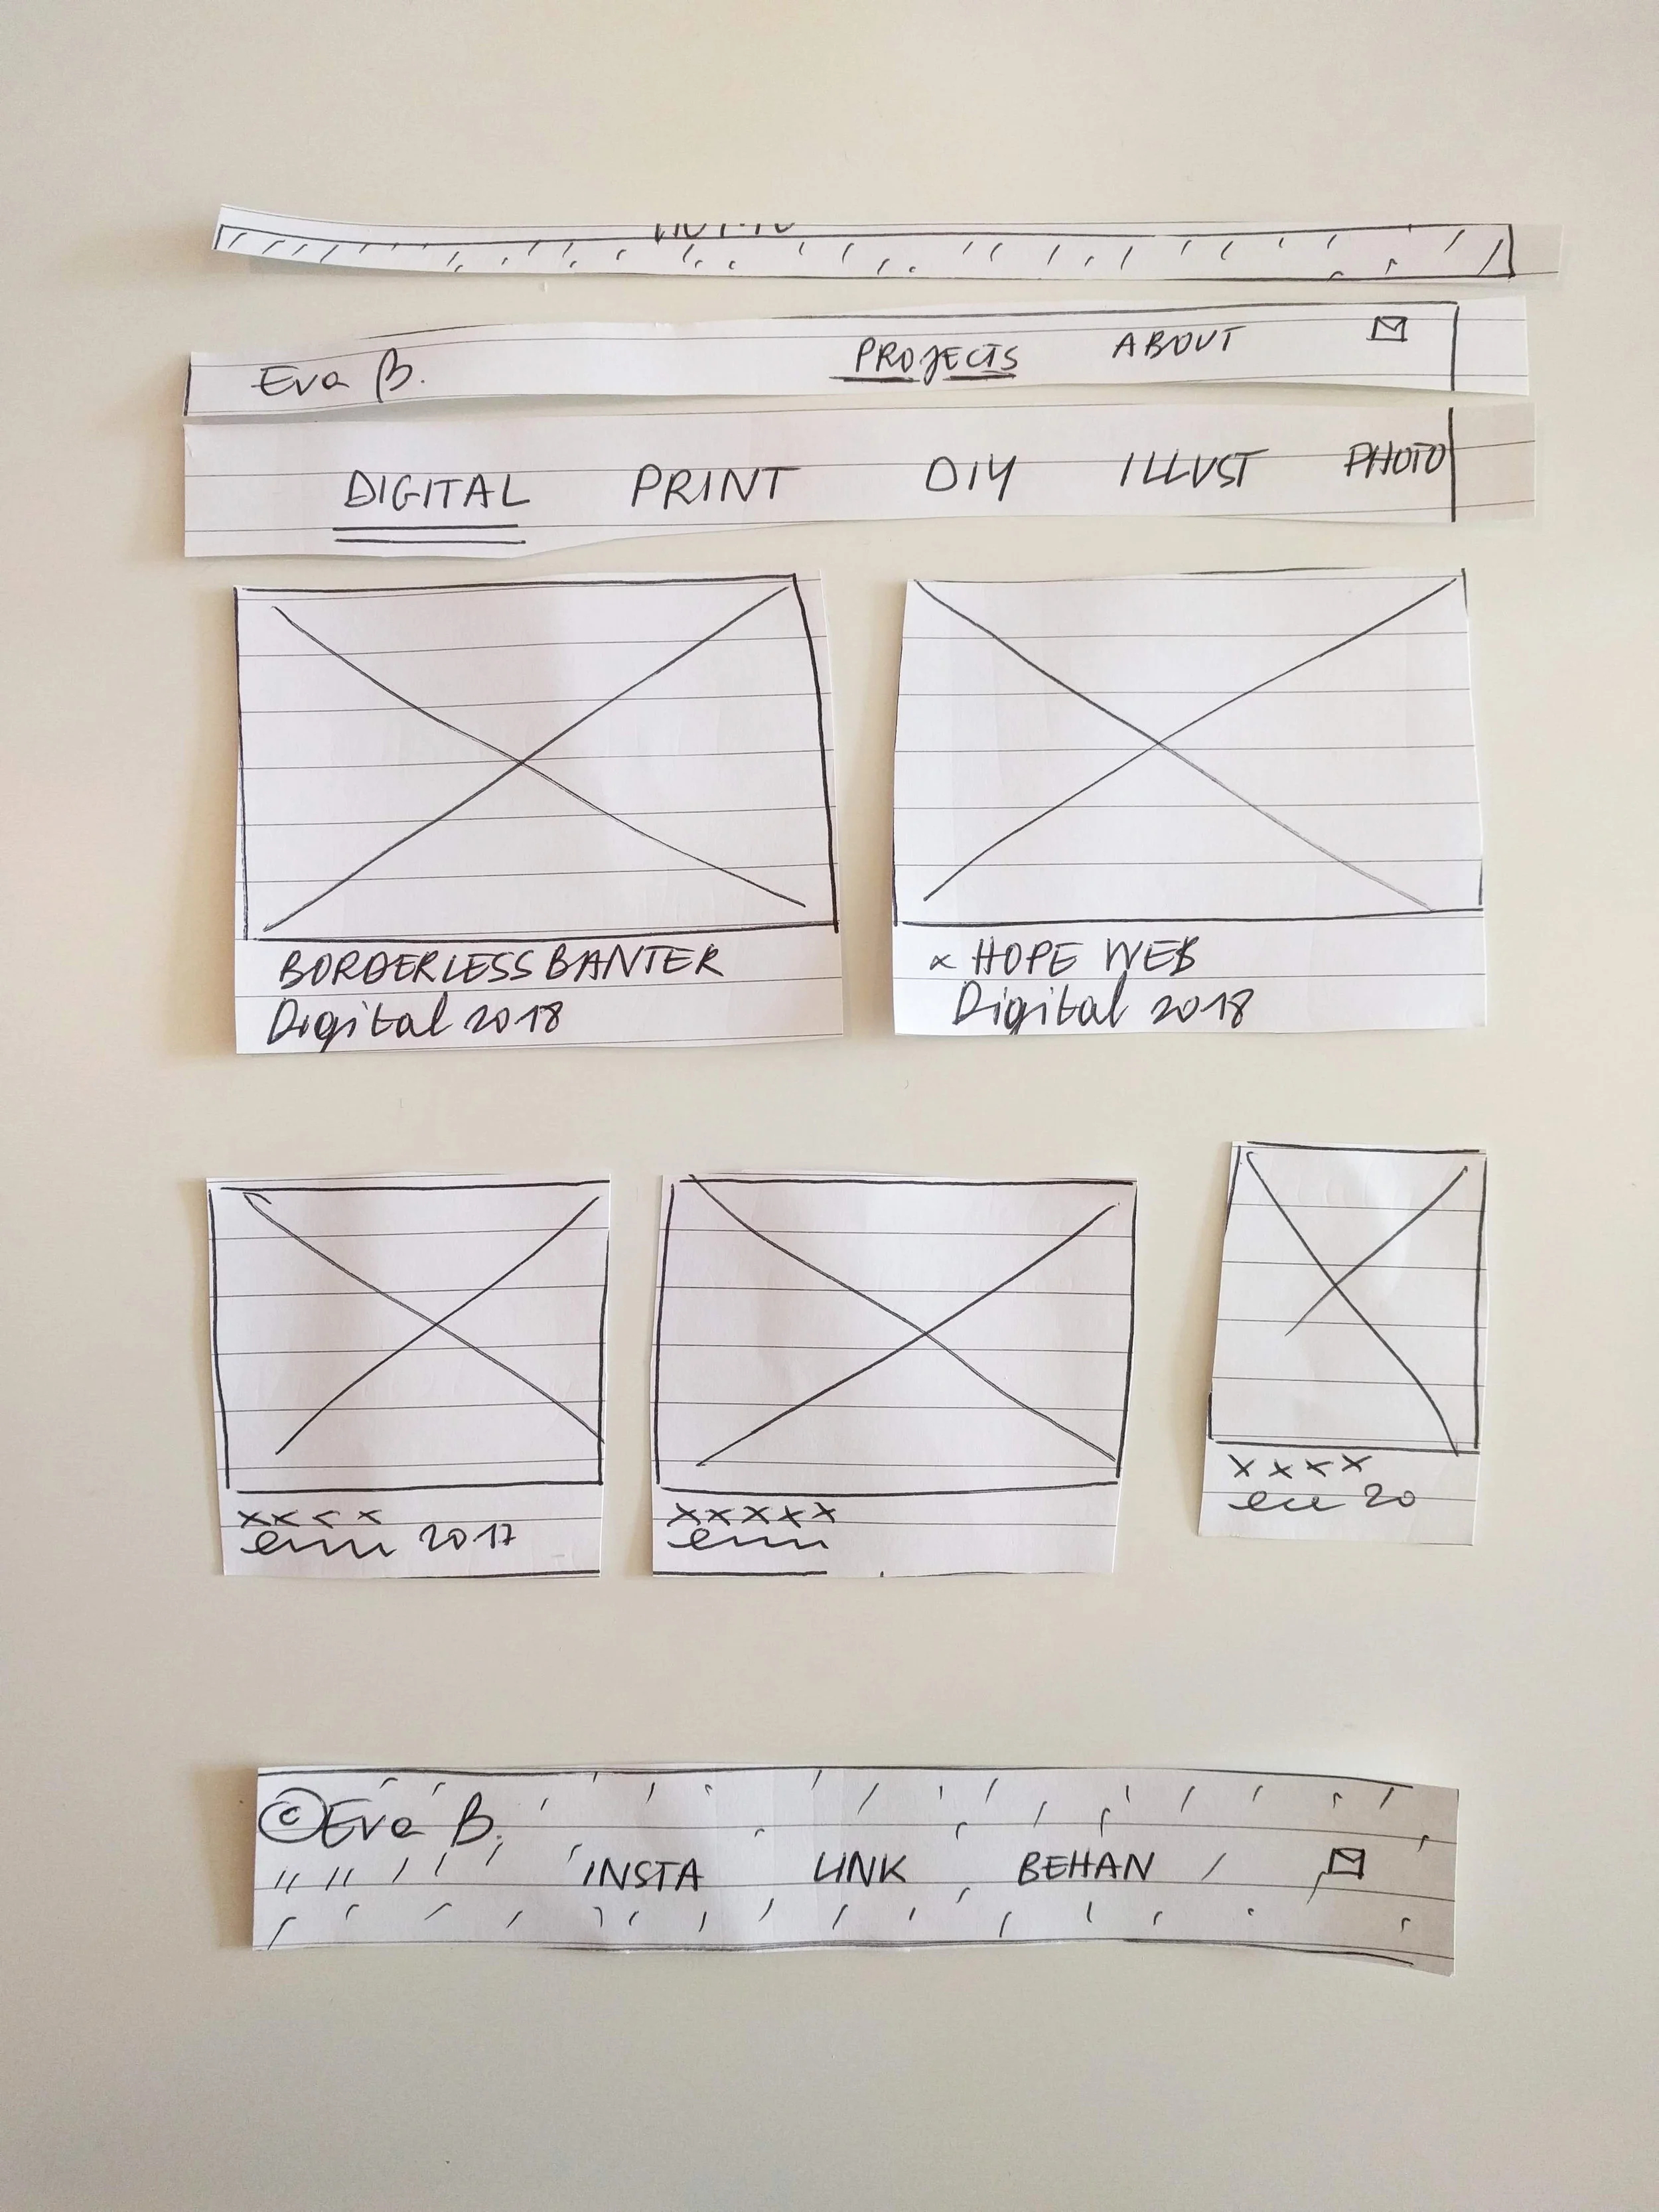 Eva B. PROJECTS ABOUT
DIGITAL PRINT DIY ILLUST PHOTO
BORDERLESS BANTER
Digital 2018
HOPE WEB
Digital 2018
xxxx
2017
xxxxx
xxxx
20
© Eva B.
INSTA LINK BEHAN